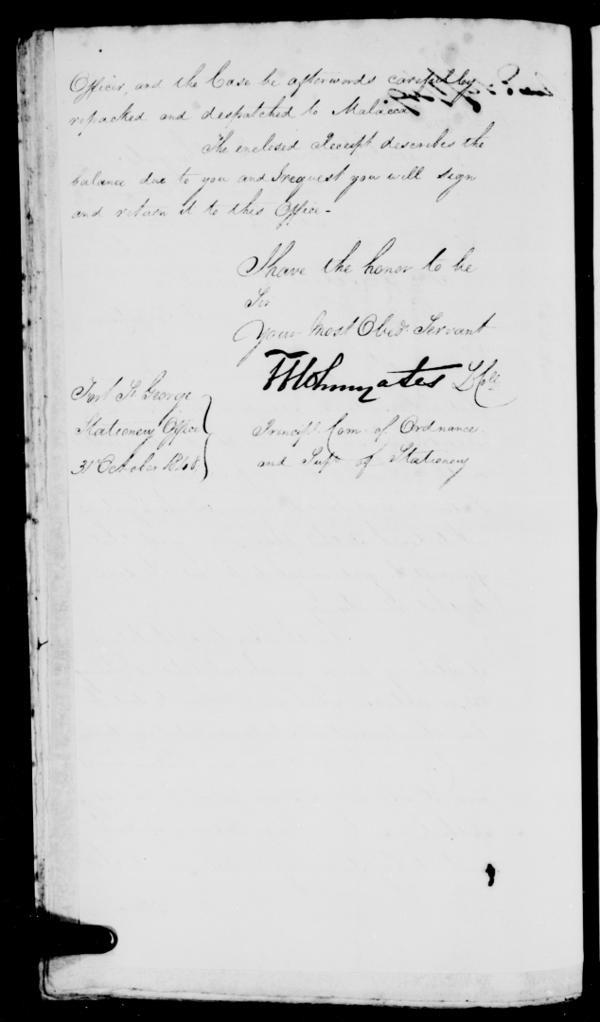 Officer, and the Case be afterwards carefully
repacked and despatched to Malacca
The enclosed Receipt describes the
balance due to you and I request you will sign
and return it to this Office -
I have the honor to be
Sir
Your Most Obedt. Servant
Fort St. George
Stationery Office
31 October 1848
Principl. Com. of Ordnance
and Supt. of Stationery